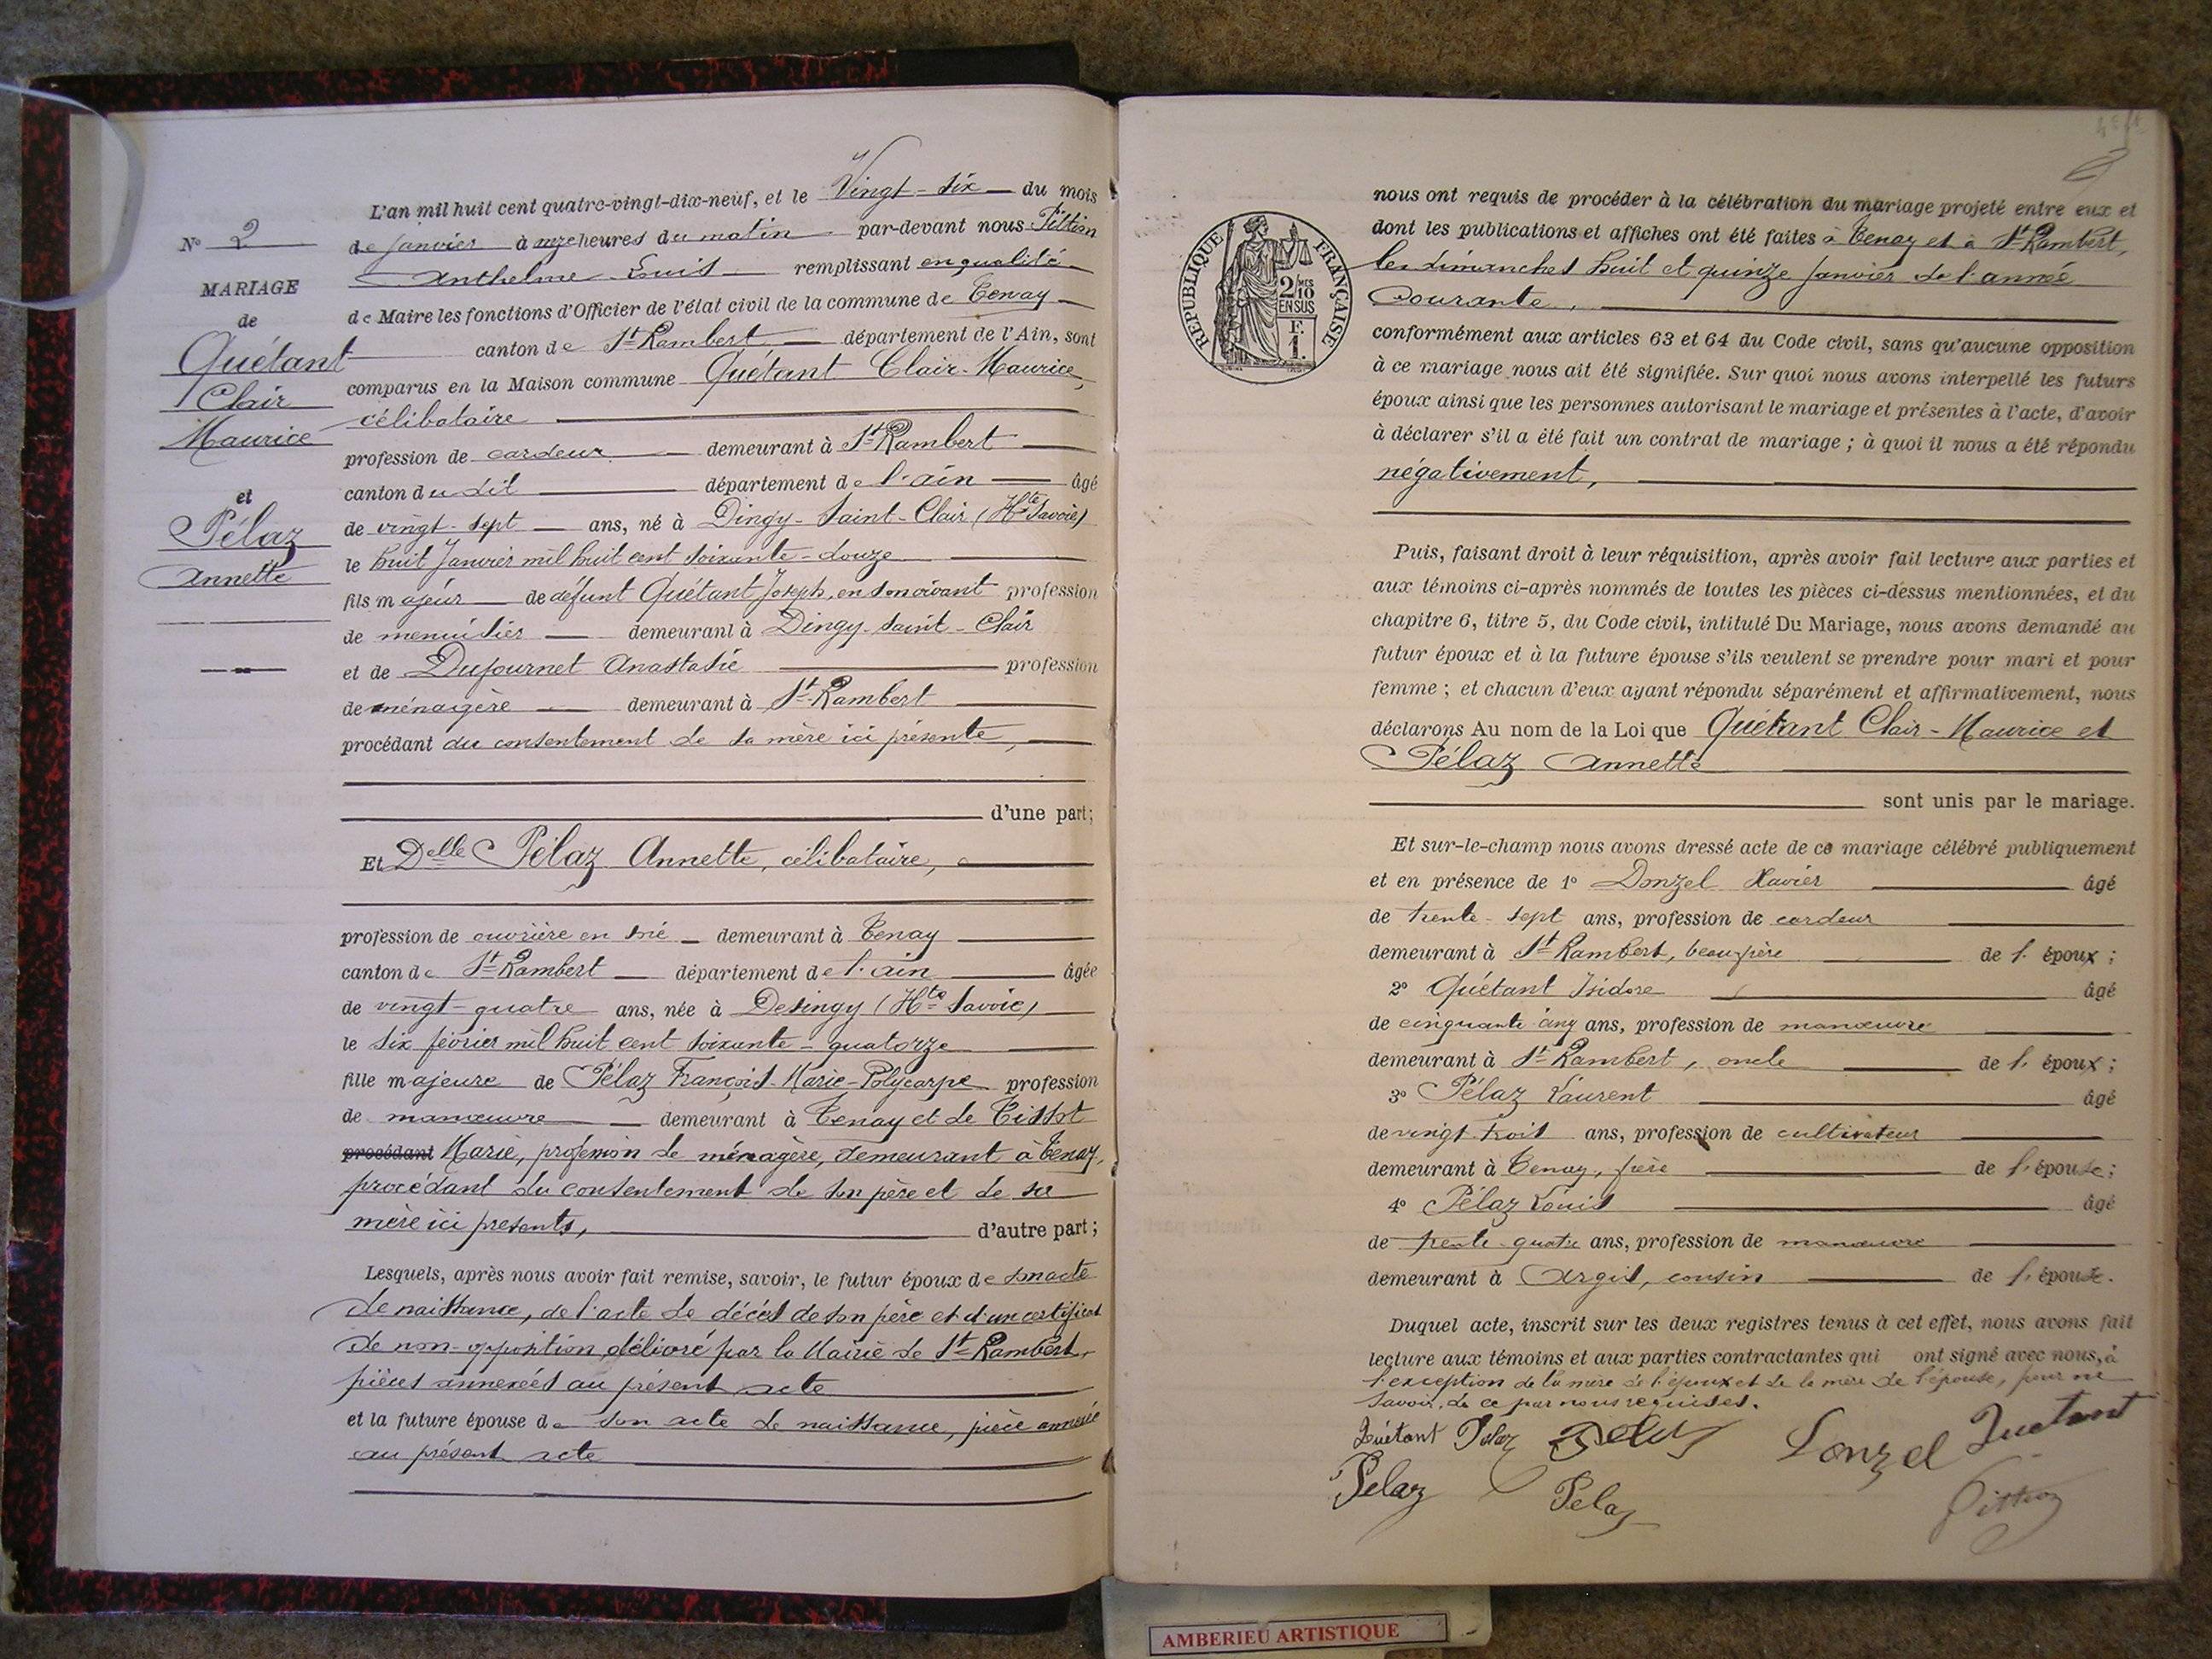 N° 2
MARIAGE
de
Quétant
Clair
Maurice
et
Pélaz
Annette
L'an mil huit cent quatre-vingt-dix-neuf, et le Vingt-six du mois
de janvier à onze heures du matin par-devant nous Pittion
Anthelme Louis remplissant en qualité
de Maire les fonctions d'Officier de l'état civil de la commune de Tenay
canton de St Rambert département de l'Ain, sont
comparus en la Maison commune Quétant Clair-Maurice,
célibataire
profession de cardeur demeurant à St Rambert
canton dudit département de l'ain âgé
de vingt-sept ans, né à Dingy-Saint-Clair (Hte Savoie)
le huit Janvier mil huit cent soixante-douze
fils majeur de défunt Quétant Joseph, en son vivant profession
de menuisier demeurant à Dingy-Saint-Clair
et de Dufournet Anastasie profession
de ménagère demeurant à St Rambert
procédant du consentement de sa mère ici présente,
d'une part;
Et Delle Pélaz Annette, célibataire,
profession de ouvrière en soie demeurant à Tenay
canton de St Rambert département de l'ain âgée
de vingt-quatre ans, née à Desingy (Hte Savoie)
le six février mil huit cent soixante-quatorze
fille majeure de Pélaz François-Marie-Polycarpe profession
de manœuvre demeurant à Tenay et de Tissot
procédant Marie, profession de ménagère, demeurant à Tenay,
procédant du consentement de son père et de sa
mère ici présents, d'autre part;
Lesquels, après nous avoir fait remise, savoir, le futur époux de son acte
de naissance, de l'acte de décès de son père et d'un certificat
de non-opposition délivré par la Mairie de St Rambert,
pièces annexées au présent acte
et la future épouse de son acte de naissance, pièce annexée
au présent acte
RÉPUBLIQUE FRANÇAISE
2 MES
10
EN SUS
F.
1.
nous ont requis de procéder à la célébration du mariage projeté entre eux et
dont les publications et affiches ont été faites à Tenay et à St Rambert,
les dimanches huit et quinze janvier de l'année
courante,
conformément aux articles 63 et 64 du Code civil, sans qu'aucune opposition
à ce mariage nous ait été signifiée. Sur quoi nous avons interpellé les futurs
époux ainsi que les personnes autorisant le mariage et présentes à l'acte, d'avoir
à déclarer s'il a été fait un contrat de mariage ; à quoi il nous a été répondu
négativement,
Puis, faisant droit à leur réquisition, après avoir fait lecture aux parties et
aux témoins ci-après nommés de toutes les pièces ci-dessus mentionnées, et du
chapitre 6, titre 5, du Code civil, intitulé Du Mariage, nous avons demandé au
futur époux et à la future épouse s'ils veulent se prendre pour mari et pour
femme ; et chacun d'eux ayant répondu séparément et affirmativement, nous
déclarons Au nom de la Loi que Quétant Clair-Maurice et
Pélaz Annette
sont unis par le mariage.
Et sur-le-champ nous avons dressé acte de ce mariage célébré publiquement
et en présence de 1° Donzel Xavier âgé
de trente-sept ans, profession de cardeur
demeurant à St Rambert, beau-père de l'époux ;
2° Quétant Isidore âgé
de cinquante cinq ans, profession de manœuvre
demeurant à St Rambert, oncle de l'époux ;
3° Pélaz Laurent âgé
de vingt trois ans, profession de cultivateur
demeurant à Tenay, frère de l'épouse ;
4° Pélaz Louis âgé
de trente-quatre ans, profession de manœuvre
demeurant à Argis, cousin de l'épouse.
Duquel acte, inscrit sur les deux registres tenus à cet effet, nous avons fait
lecture aux témoins et aux parties contractantes qui ont signé avec nous, à
l'exception de la mère de l'époux et de la mère de l'épouse, pour ne
savoir, de ce par nous requises.
Quétant Pelaz Donzel Quetant
Pelaz Pelaz Pittion
AMBERIEU ARTISTIQUE